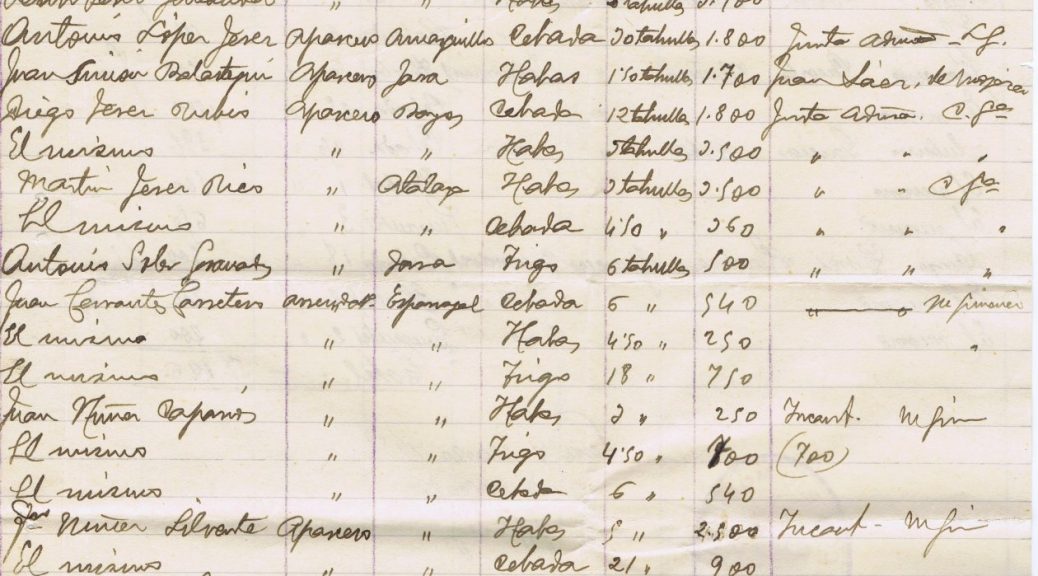 Habas " tahullas
Antonio López Jerez Aparcero Amarguillo Cebada 30 tahullas 1.800 Junta admón
Juan Simón Belastegui Aparcero Jara Habas 1'50 tahullas 1.700 Juan Sáez, de
Diego Jerez Rubio Aparcero Cebada 12 tahullas 1.800 Junta admón. C. Gª
El mismo " " Habas tahullas 3.500 " " "
Martín Jerez Rico " Atalaya Habas 3 tahullas 3.500 " " C Gª
El mismo " Cebada 4'50 " 360 " " "
Antonio Soler Granados " Jara Trigo 6 tahullas 500 " " "
Juan Cervantes Carretero arrendat. Esparragal Cebada 6 " 540 " " M Gimenez
El mismo " " Habas 4'50 " 250 "
El mismo " " Trigo 18 " 750
Juan Núñez Caparrós " " Habas 3 " 250 Incaut. M Gim
El mismo " " Trigo 4'50 " 700 (700)
El mismo " " Cebada 6 " 540
Núñez Silvante Aparcero " Habas 5 " 2.500 Incaut - M Gim
El mismo " " Cebada 21 " 900